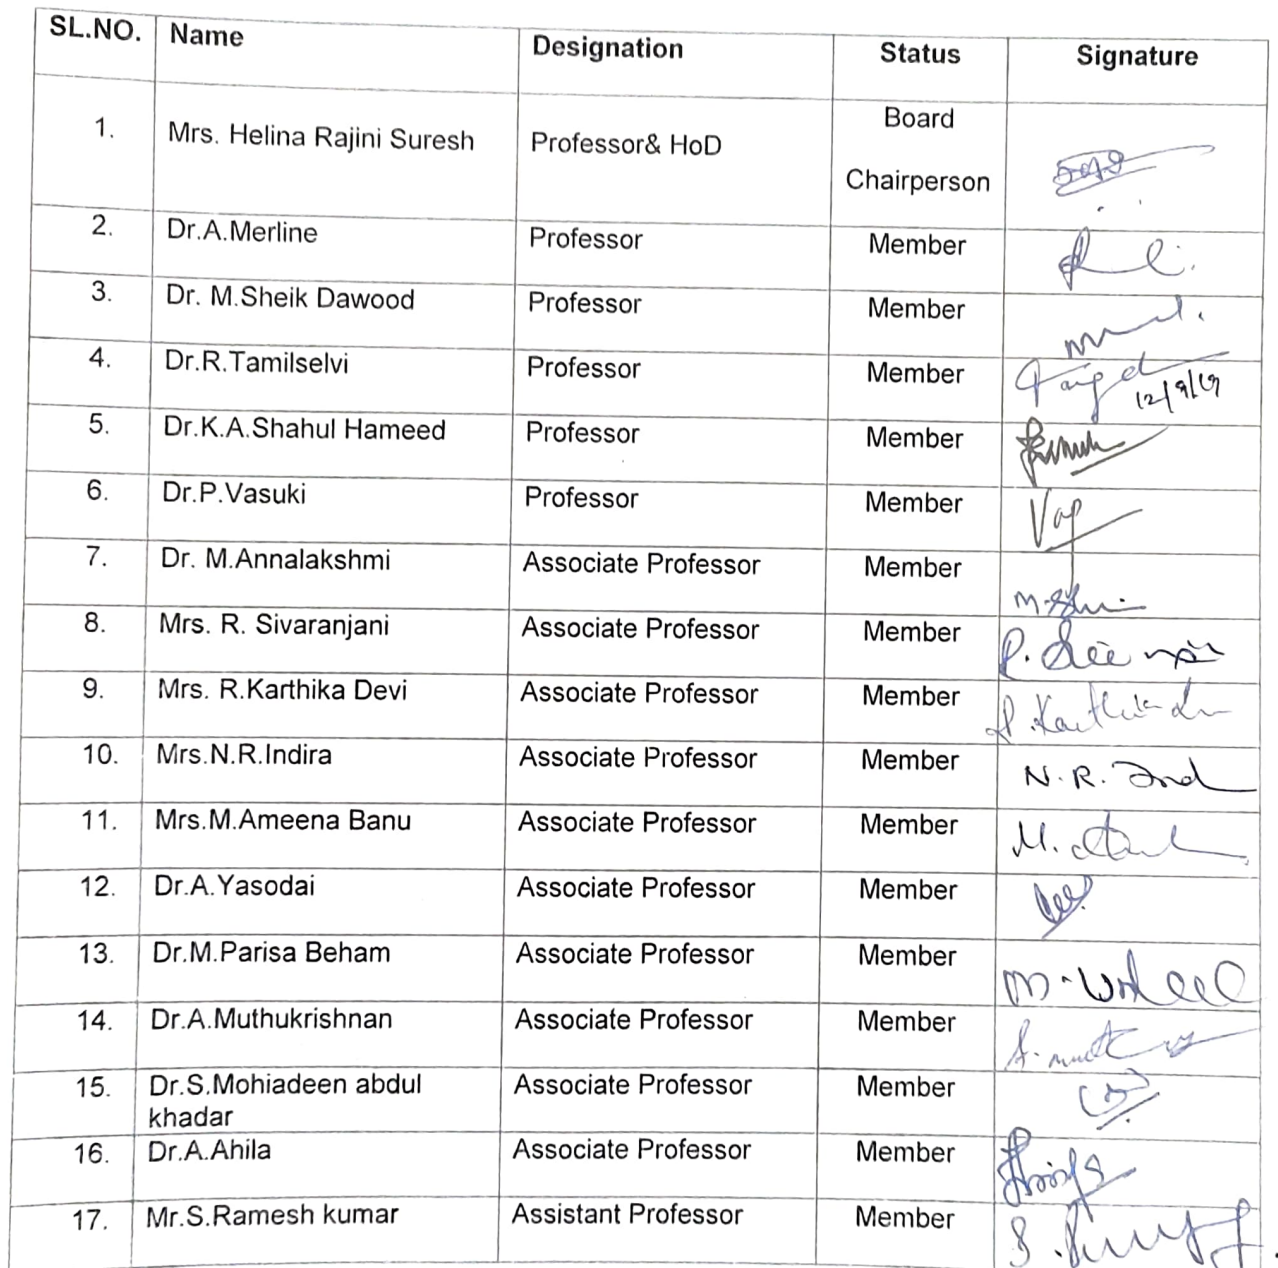 SL.NO. Name Designation Status Signature
1. Mrs. Helina Rajini Suresh Professor& HoD Board
Chairperson
2. Dr.A.Merline Professor Member
3. Dr. M.Sheik Dawood Professor Member
4. Dr.R.Tamilselvi Professor Member
12/9/19
5. Dr.K.A.Shahul Hameed Professor Member
6. Dr.P.Vasuki Professor Member
7. Dr. M.Annalakshmi Associate Professor Member
8. Mrs. R. Sivaranjani Associate Professor Member
9. Mrs. R.Karthika Devi Associate Professor Member
10. Mrs.N.R.Indira Associate Professor Member N.R.
11. Mrs.M.Ameena Banu Associate Professor Member M.
12. Dr.A.Yasodai Associate Professor Member
13. Dr.M.Parisa Beham Associate Professor Member
14. Dr.A.Muthukrishnan Associate Professor Member
15. Dr.S.Mohiadeen abdul Associate Professor Member
khadar
16. Dr.A.Ahila Associate Professor Member
17. Mr.S.Ramesh kumar Assistant Professor Member